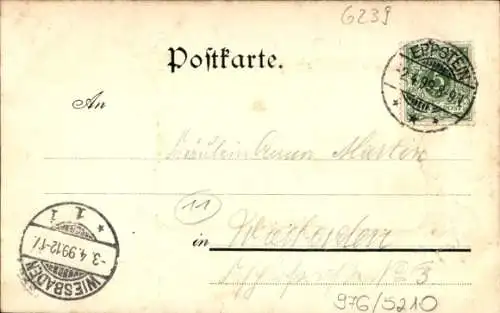 6239
Postkarte.
EPPSTEIN
2.4.99 8-9N
An
Fräulein Anna Martin
11
in Wiesbaden
No 3
WIESBADEN
1 i
-3.4.99.12-1V.
976/5210